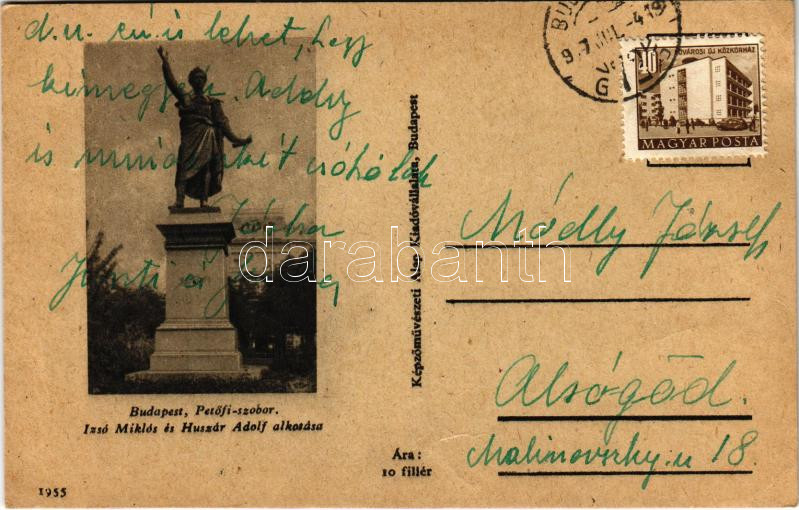 d.u. én is lehet, hogy
kimegyek. Addig
is csókolak
Budapest, Petőfi-szobor.
Izsó Miklós és Huszár Adolf alkotása
1955
Képzőművészeti Alap Kiadóvállalata, Budapest
Ára:
10 fillér
FŐVÁROSI ÚJ KÖZKÓRHÁZ
MAGYAR POSTA
Módly József
Alsógöd.
Malinovszky u 18.
darabanth